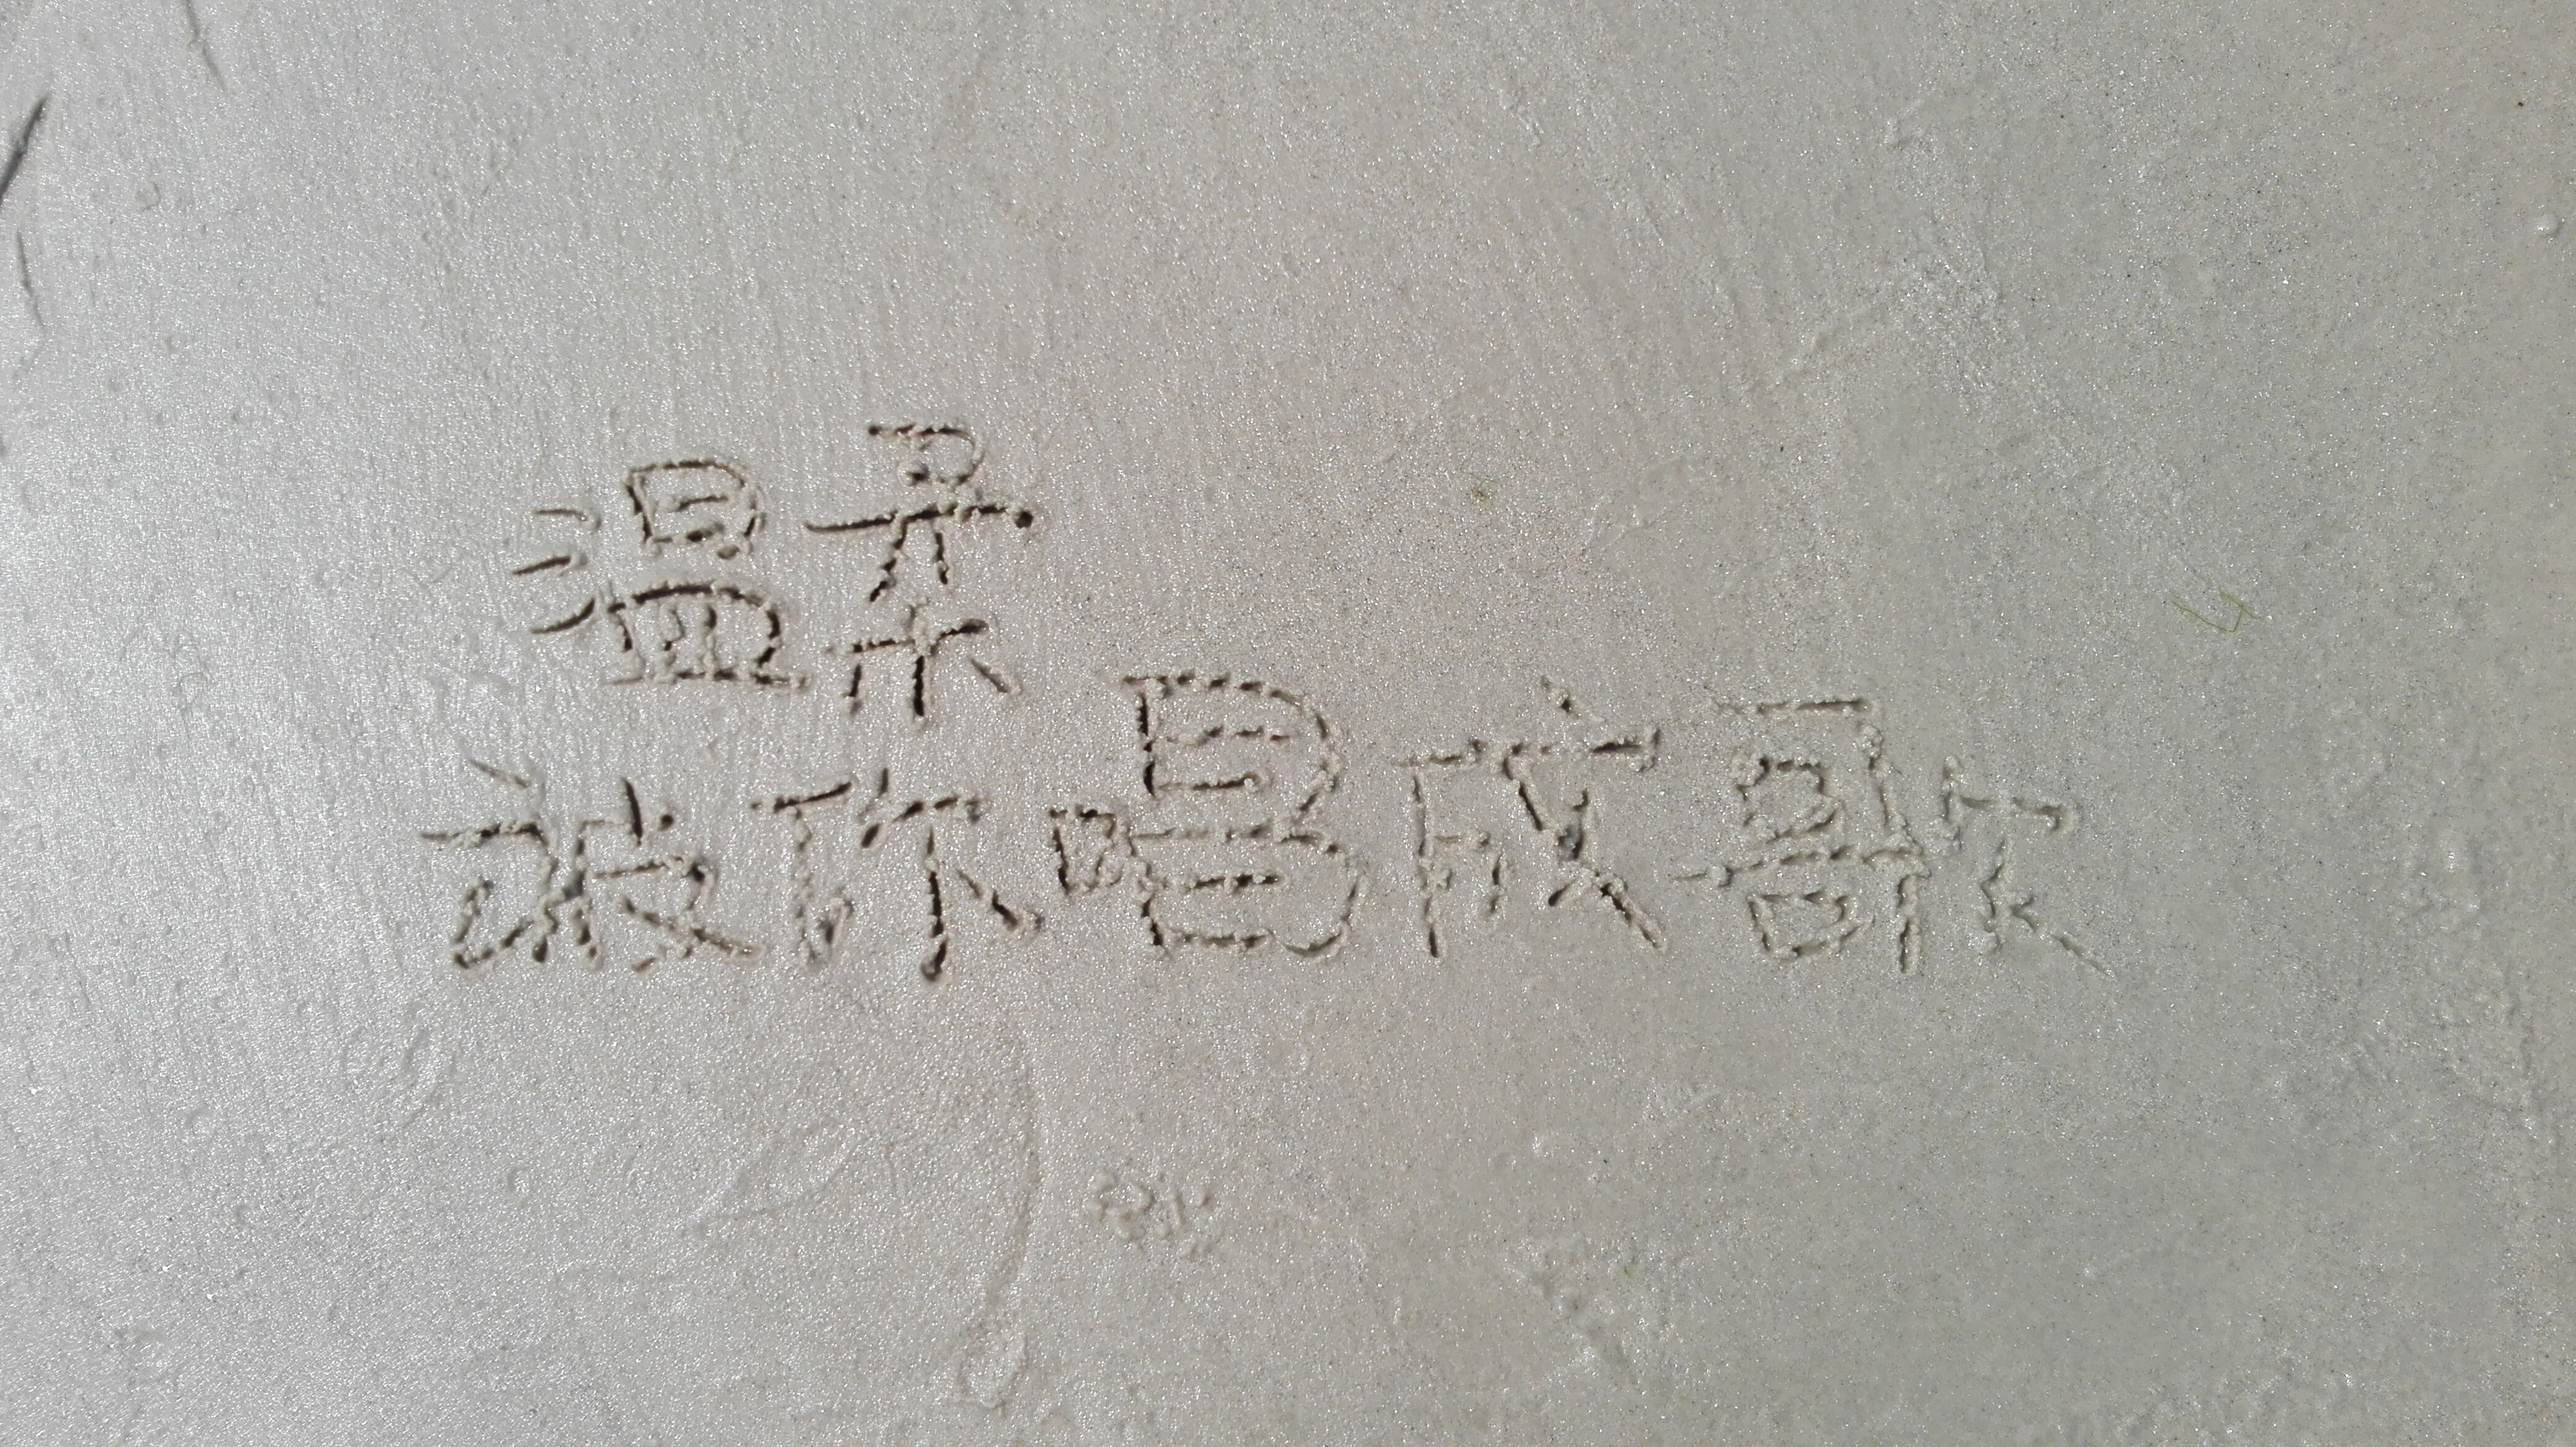 温柔
被你唱成歌